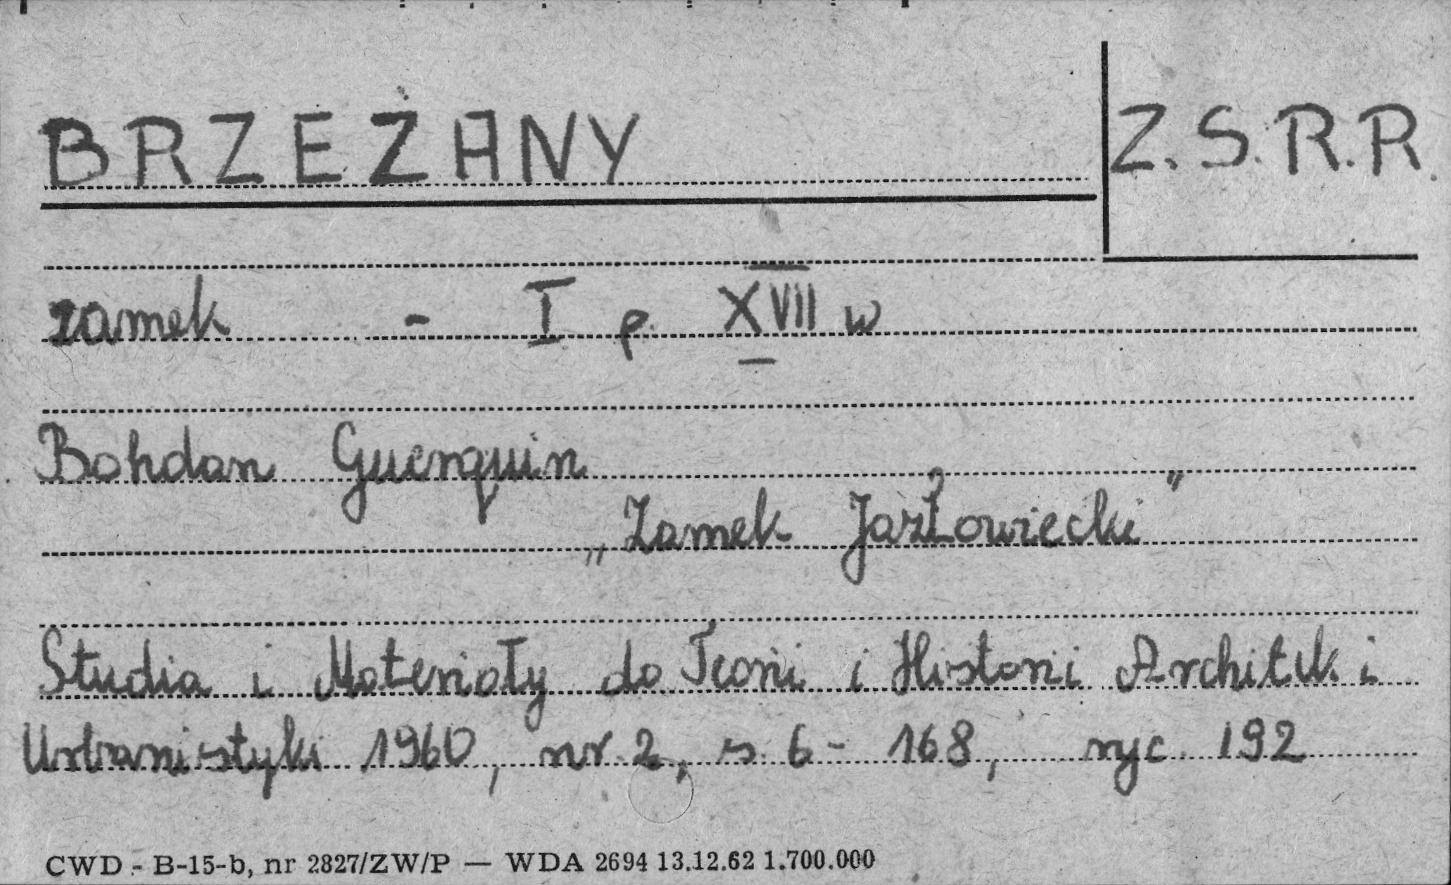 BRZEŻANY
Z.S.R.R.
zamek - I p. XVII w
Bohdan Guerquin
„Zamek Jazłowiecki"
Studia i Materiały do Teorii i Historii Architek i
Urbanistyki 1960, nr. 2, s. 6 - 168, ryc. 192
CWD - B-15-b, nr 2827/ZW/P — WDA 2694 13.12.62 1.700.000